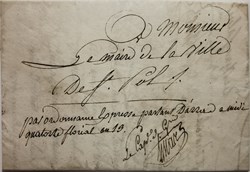 A Monsieur
Le maire de la Ville
De St. Pol
par ordonnance Expresse partant D'arras a midi
quatorze floréal an 13.
Le Cap.